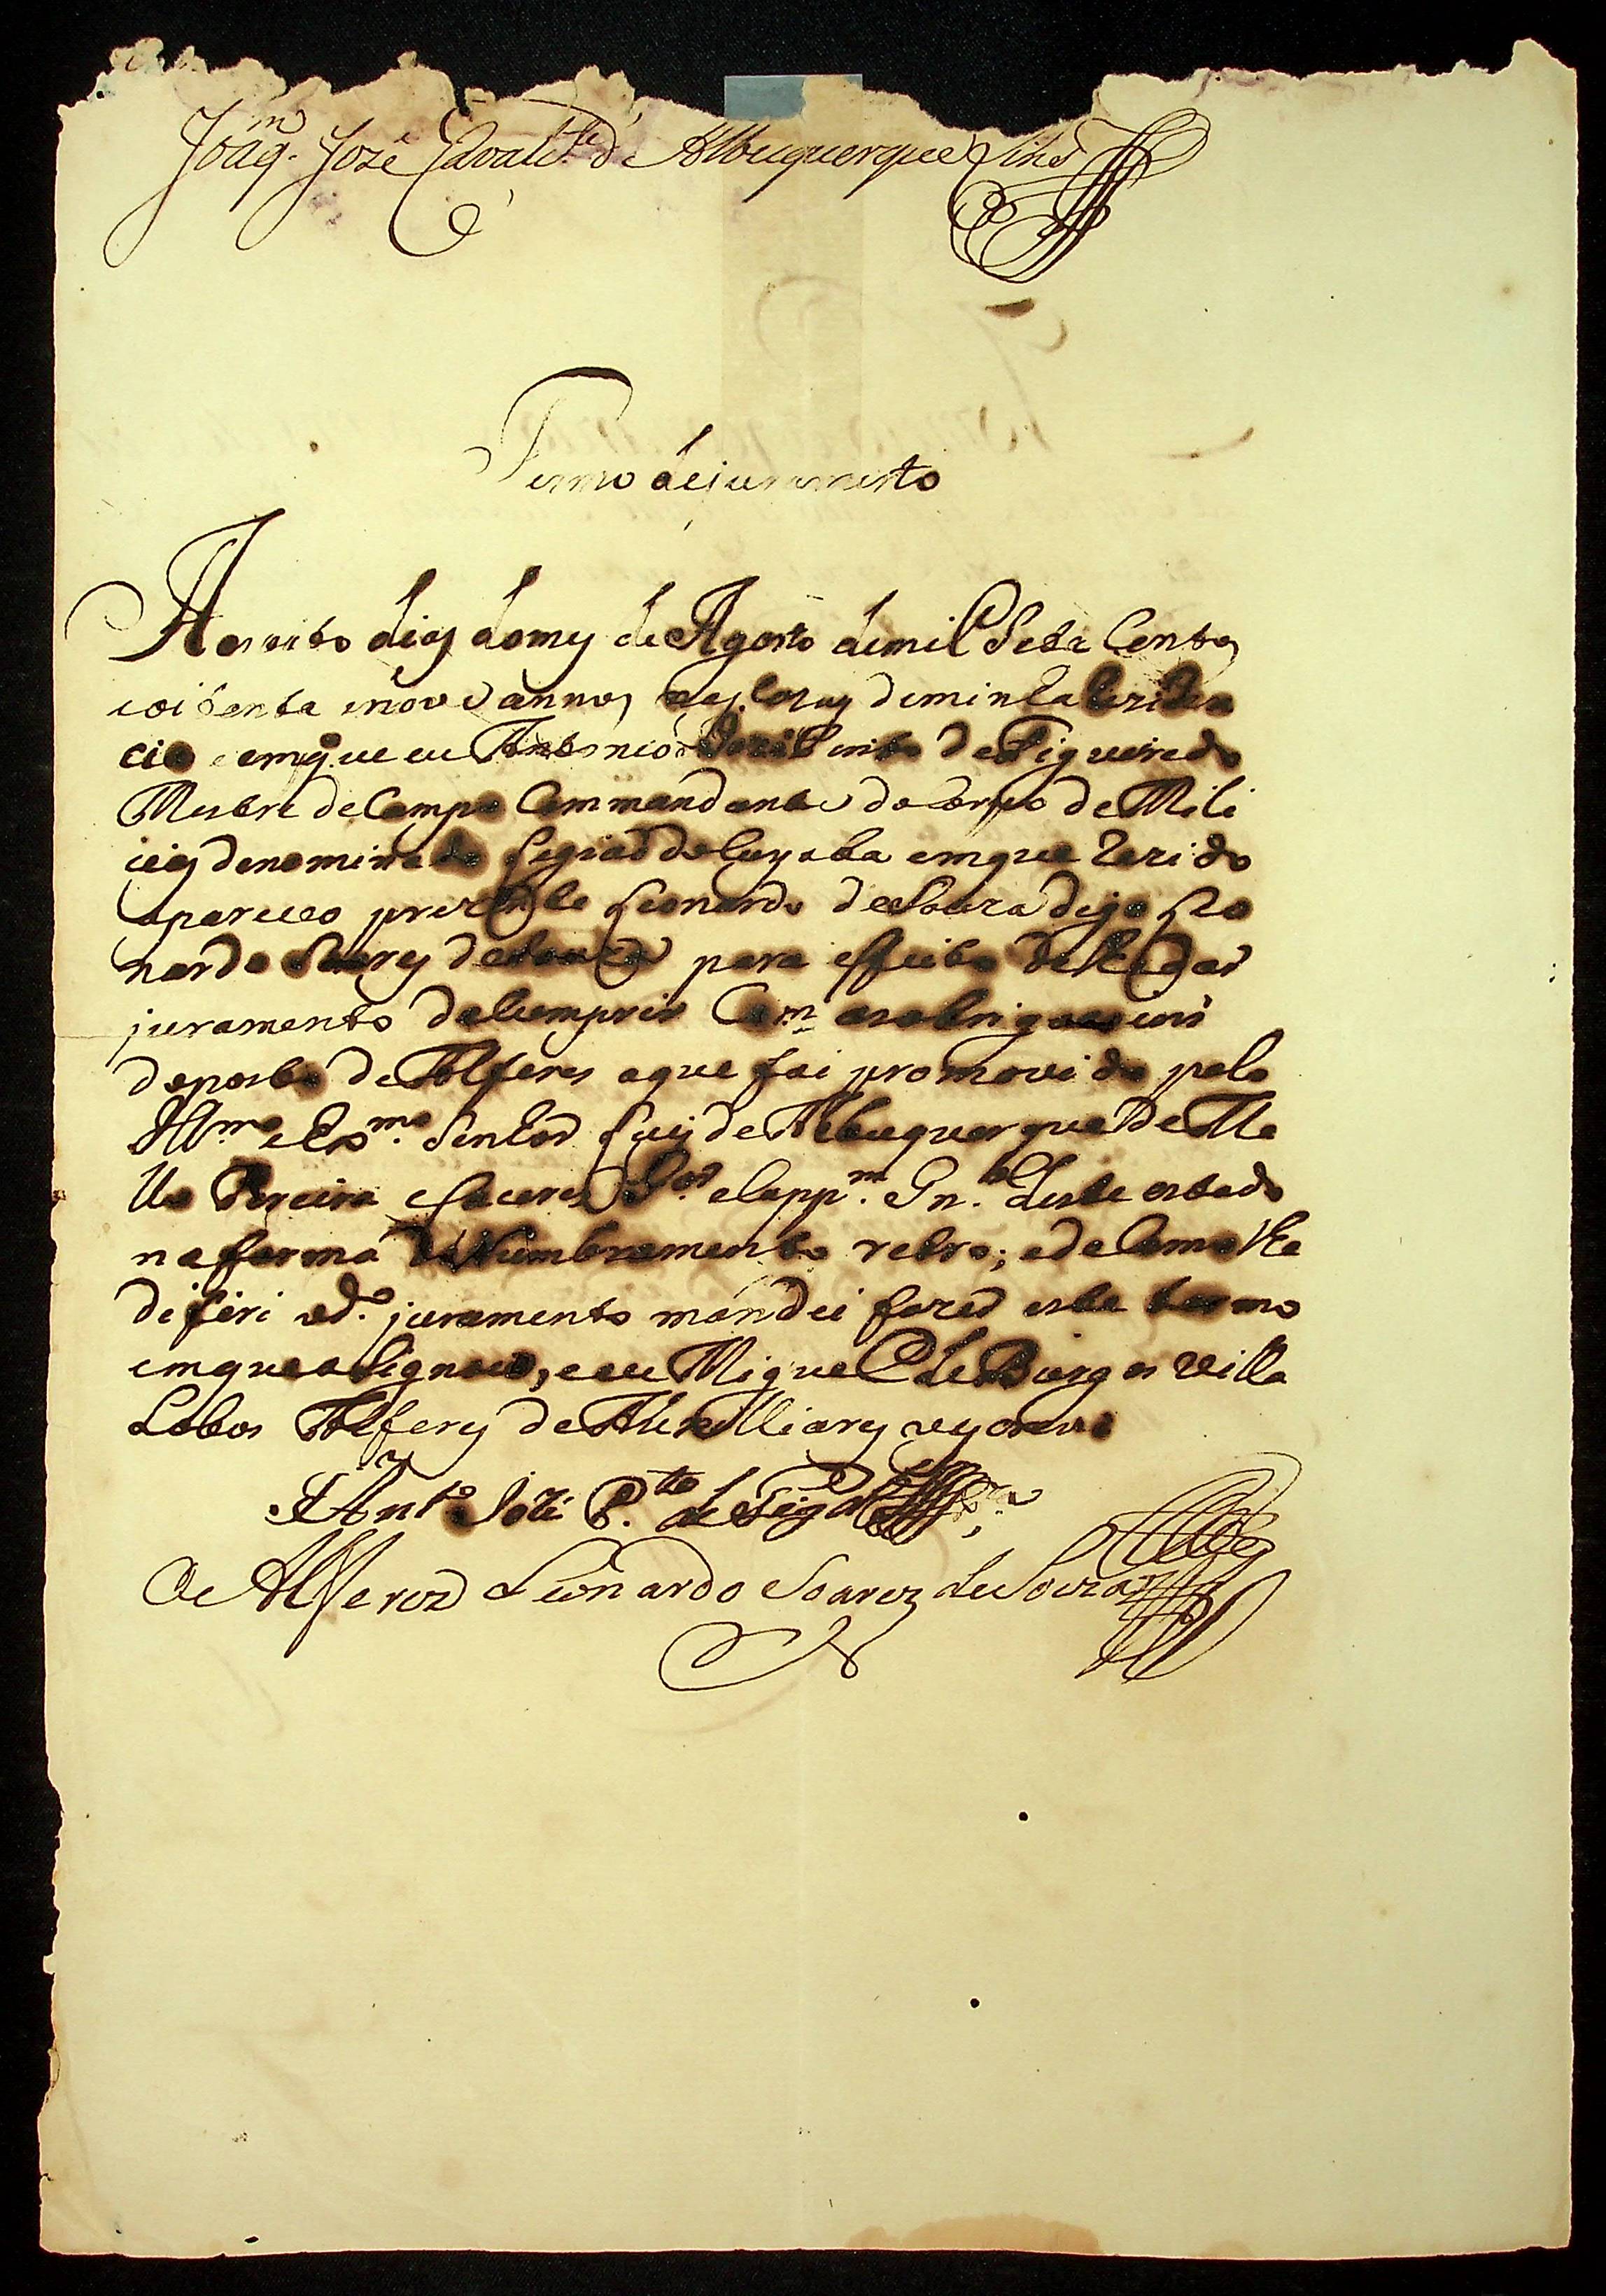 Joaq.m Joze Cavalc.te d'Albuquerque Lins
Termo de juramento
Aos oito dias do mes de Agosto de mil Sete Centos
e oitenta e nove annos nas Cazas de minha
em que eu Antonio Joze Pinto de Figueiredo
Mestre de Campo Commandante do Corpo de Mili
cias denominado Legiaõ do Cuyaba em que Rezido
apareceo prezente Leonardo de Souza digo Leo
nardo Soares de Souza para effeito de
juramento de Cumprir Com as obrigaçoins
do posto de Alferes a que foi promovido pelo
Ill.mo e Ex.mo Senhor Luis de Albuquerque de Me
llo Pereira e Caceres G.or e Capp.m Gn.al deste estado
na forma do Numbramento retro; e de Como lhe
diferi o d.o juramento mandei fazer este termo
em que asignou, e eu Miguel de Burgos Villa
Lobos Alferes de Auxilliares
Ant.o Joze P.to de Fig.do
O Alferez Leonardo Soarez de Souza